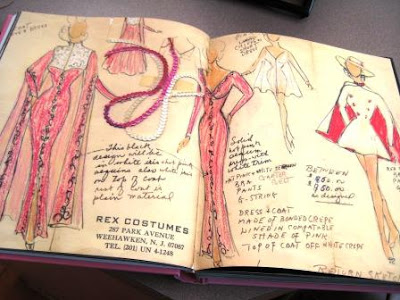 This black
design will be
in white irid
sequins also white irid
on top of coat
rest of coat is
plain material
REX COSTUMES
287 PARK AVENUE
WEEHAWKEN, N. J. 07087
TEL. (201) UN 4-1248
Solid
hot pink
sequin
gown with
white trim
PINK + WHITE
BRA
PANTS
G-STRING
DRESS & COAT
MADE OF BONDED CREPE
LINED IN COMPATIBLE
SHADE OF PINK
TOP OF COAT OFF WHITE CREPE
BETWEEN
$850.00
$950.00
as designed
RETURN SKETCH